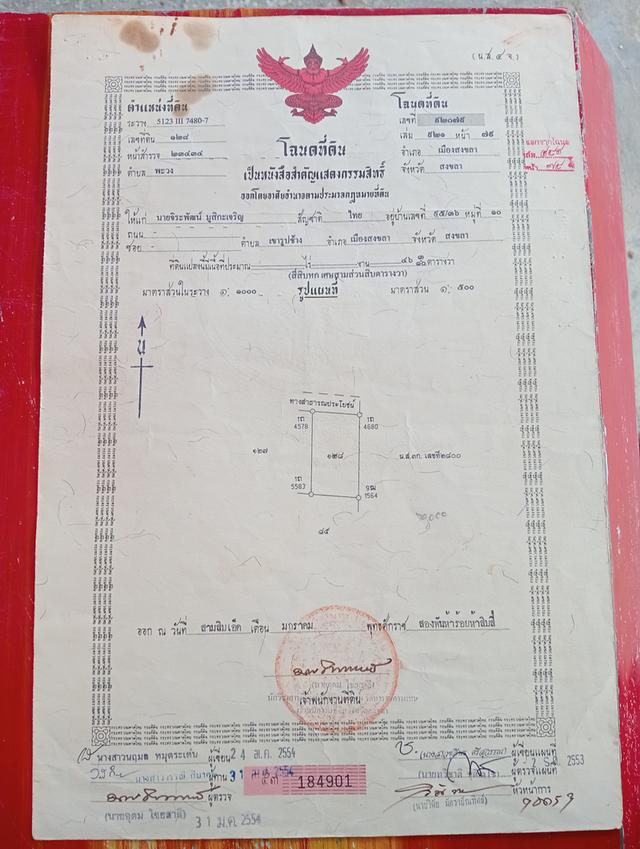 (น.ส.๔ จ.)
ตำแหน่งที่ดิน
ระวาง 5123 III 7480-7
เลขที่ดิน ๑๒๘
หน้าสำรวจ ๒๓๔๓๔
ตำบล พะวง
โฉนดที่ดิน
เลขที่ ๙๒๐๗๙
เล่ม ๙๒๑ หน้า ๗๙
อำเภอ เมืองสงขลา
จังหวัด สงขลา
โฉนดที่ดิน
เป็นหนังสือสำคัญแสดงกรรมสิทธิ์
ออกโดยอาศัยอำนาจตามประมวลกฎหมายที่ดิน
ให้แก่ นายจิระพัฒน์ มูสิกะเจริญ สัญชาติ ไทย อยู่บ้านเลขที่ ๙๕/๓๖ หมู่ที่ ๑๐
ถนน -
ซอย - ตำบล เขารูปช้าง อำเภอ เมืองสงขลา จังหวัด สงขลา
ที่ดินแปลงนี้มีเนื้อที่ประมาณ ไร่ งาน ๔๖ ตารางวา
(สี่สิบหกเศษสามส่วนสิบตารางวา)
มาตราส่วนในระวาง ๑: ๑๐๐๐ รูปแผนที่ มาตราส่วน ๑: ๕๐๐
น
ทางสาธารณประโยชน์
1ถ 4578
1ถ 4680
๑๒๗
๑๒๘
น.ส.๓ก. เลขที่๒๘๐๐
1ถ 5583
9ฒ 1564
๘๕
ออก ณ วันที่ สามสิบเอ็ด เดือน มกราคม พุทธศักราช สองพันห้าร้อยห้าสิบสี่
(นายอุดม ไชยสาลี)
เจ้าพนักงานที่ดิน
นางสาวนฤมล หมุดระเด่น ผู้เขียน 24 ม.ค. 2554
ผู้ทาน 31 ม.ค. 2554
ผู้ตรวจ
(นายอุดม ไชยสาลี) 31 ม.ค. 2554
184901
ผู้เขียนแผนที่
2553
ผู้ตรวจแผนที่
หัวหน้าการ